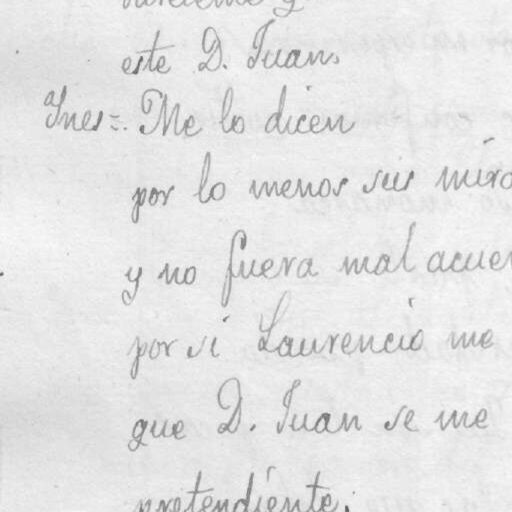 este D. Juan.
Ynes=. Me lo dicen
por lo menos sus mira
y no fuera mal acuer
por si Laurencio me
que D. Juan se me
pretendiente.